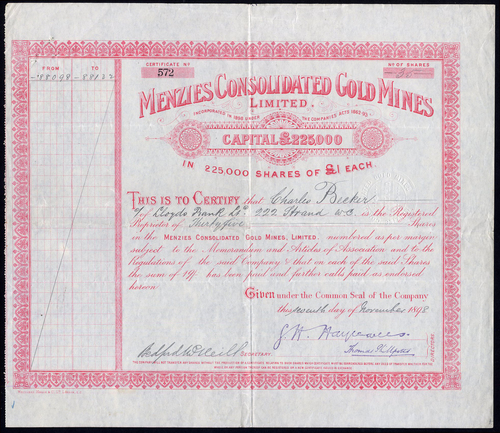 FROM TO
88098 - 88132
CERTIFICATE No
572
No OF SHARES
35
MENZIES CONSOLIDATED GOLD MINES
LIMITED.
INCORPORATED IN 1898 UNDER THE COMPANIES ACTS 1862-93.
CAPITAL £225,000
IN 225,000 SHARES OF £1 EACH.
THIS IS TO CERTIFY that Charles Becker
of Lloyds Bank Ld 222 Strand W.C. is the Registered
Proprietor of Thirtyfive Shares
in the MENZIES CONSOLIDATED GOLD MINES, LIMITED. numbered as per margin
subject to the Memorandum and Articles of Association and to the
Regulations of the said Company & that on each of the said Shares
the sum of 19/- has been paid and further calls paid as endorsed
hereon.
Given under the Common Seal of the Company
this day of November 1898
SECRETARY.